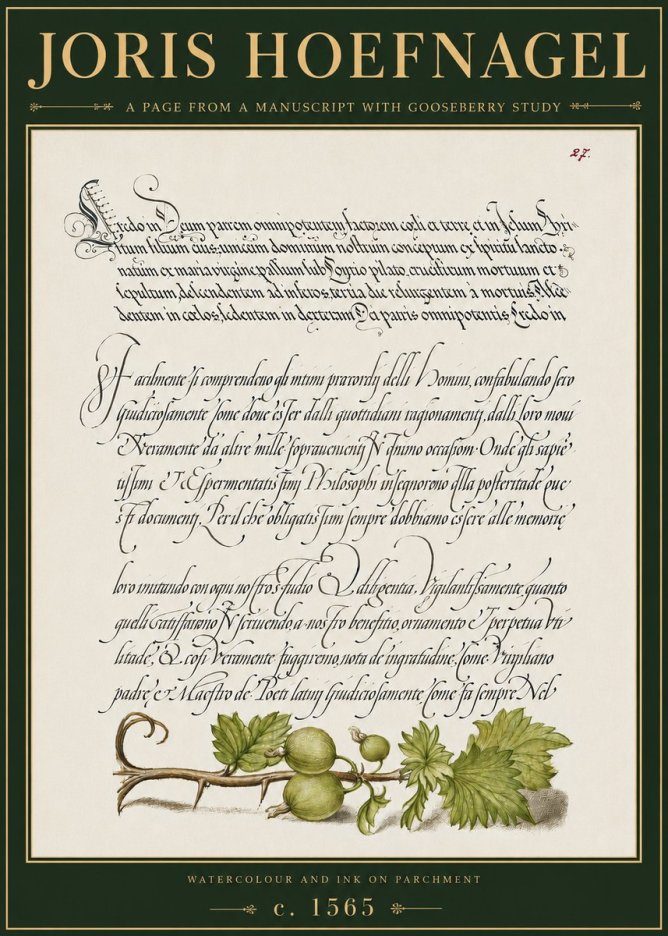 JORIS HOEFNAGEL
A PAGE FROM A MANUSCRIPT WITH GOOSEBERRY STUDY
27.
Credo in Deum patrem omnipotentem, factorem cœli et terre, et in Jesum Chri-
stum filium eius, unicum dominum nostrum conceptum ex spiritu sancto
natum ex maria virgine, passum sub Poncio pilato, crucifixum mortuum et
sepultum, descendentem ad inferos, tertia die resurgentem à mortuis, Asce
dentem in cœlos, sedentem in dexteram Dei patris omnipotentis, Credo in
Facilmente si comprendeno gli intimi precordij delli Homini, confabulando seco
giudiciosamente Come doue esser dalli quottidiani ragionamenti, dalli loro moui
Veramente da altre mille soprauenienti N d'huno occasiom. Onde gli sapiē
tissimi & Esspermentatissimj Philosophi insegnorono alla posteritade que
sti documentj. Per il che obligatissimi sempre dobbiamo essere alle memorie
loro imitando con ogni nostro studio & diligentia, Vigilantissamente quanto
quelli scriuendo, a nostro benefitio, ornamento & perpetua Vti
litade, & cosi Veramente fuggiremo, nota de ingratudine. Come Virgiliano
padre & Maestro de Poeti latinj giudiciosamente Come fa sempre Nel
WATERCOLOUR AND INK ON PARCHMENT
c. 1565